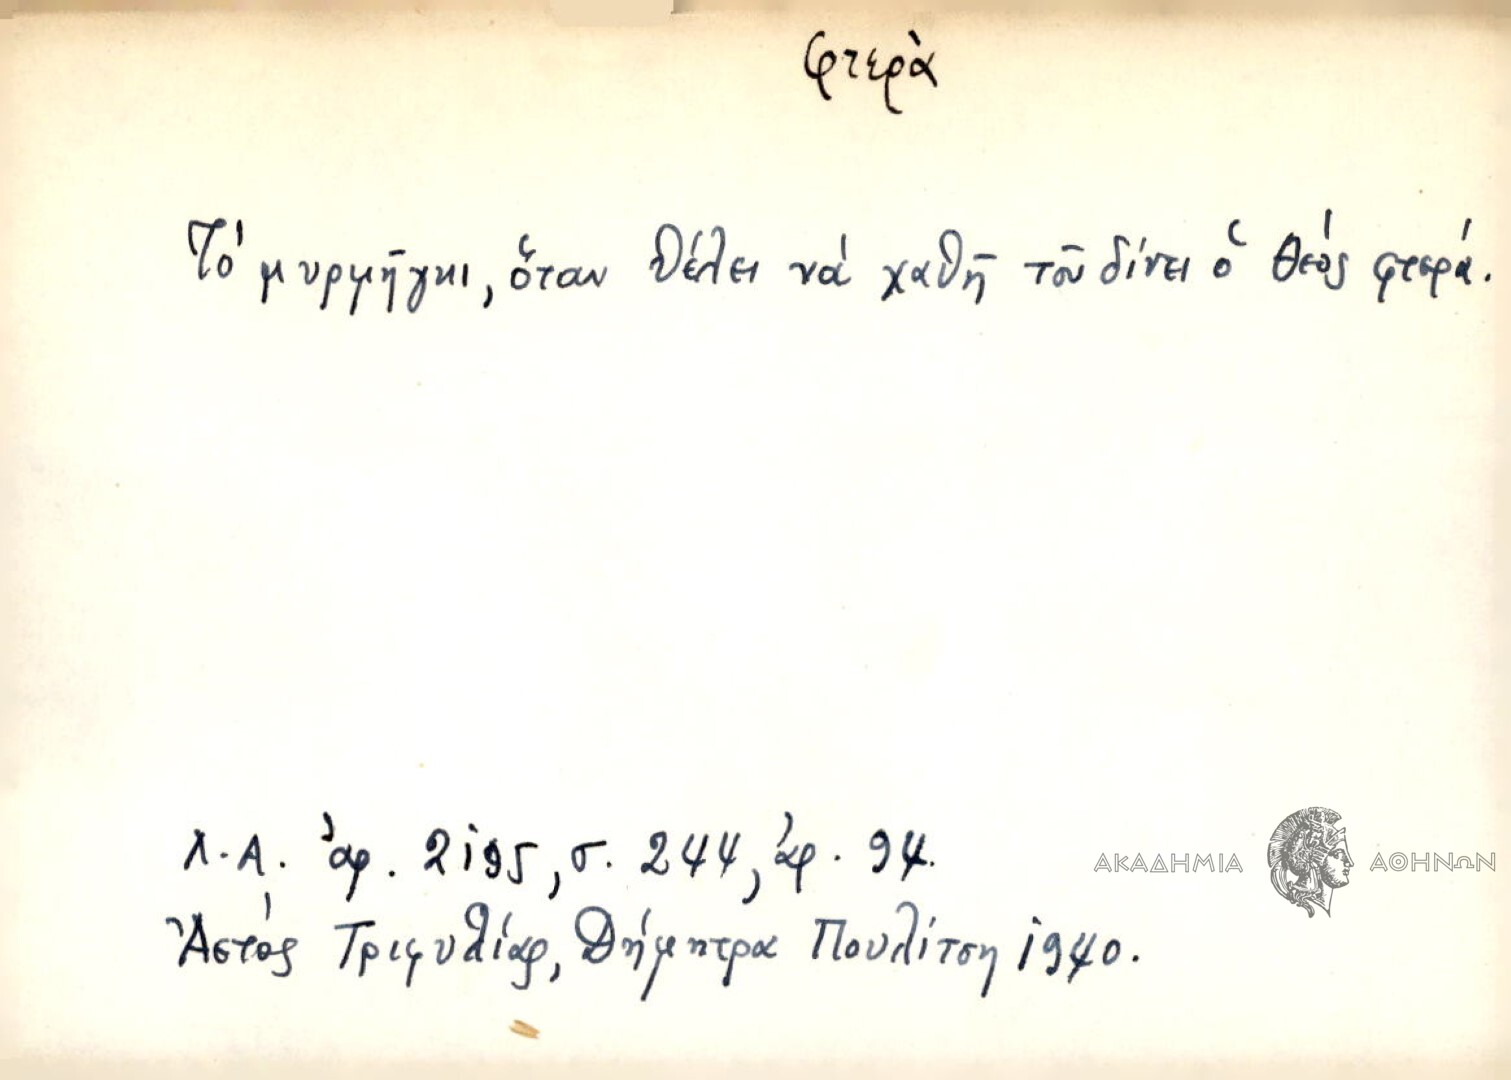 φτερὰ
Τό μυρμῆγκι, ὅταν θέλει νά χαθῆ τοῦ δίνει ὁ θεός φτερά.
Λ.Α. ἀρ. 2195, σ. 244, ἀρ. 94.
Ἀετός Τριφυλίας, Δήμητρα Πουλίτση 1940.
ΑΚΑΔΗΜΙΑ ΑΘΗΝΩΝ